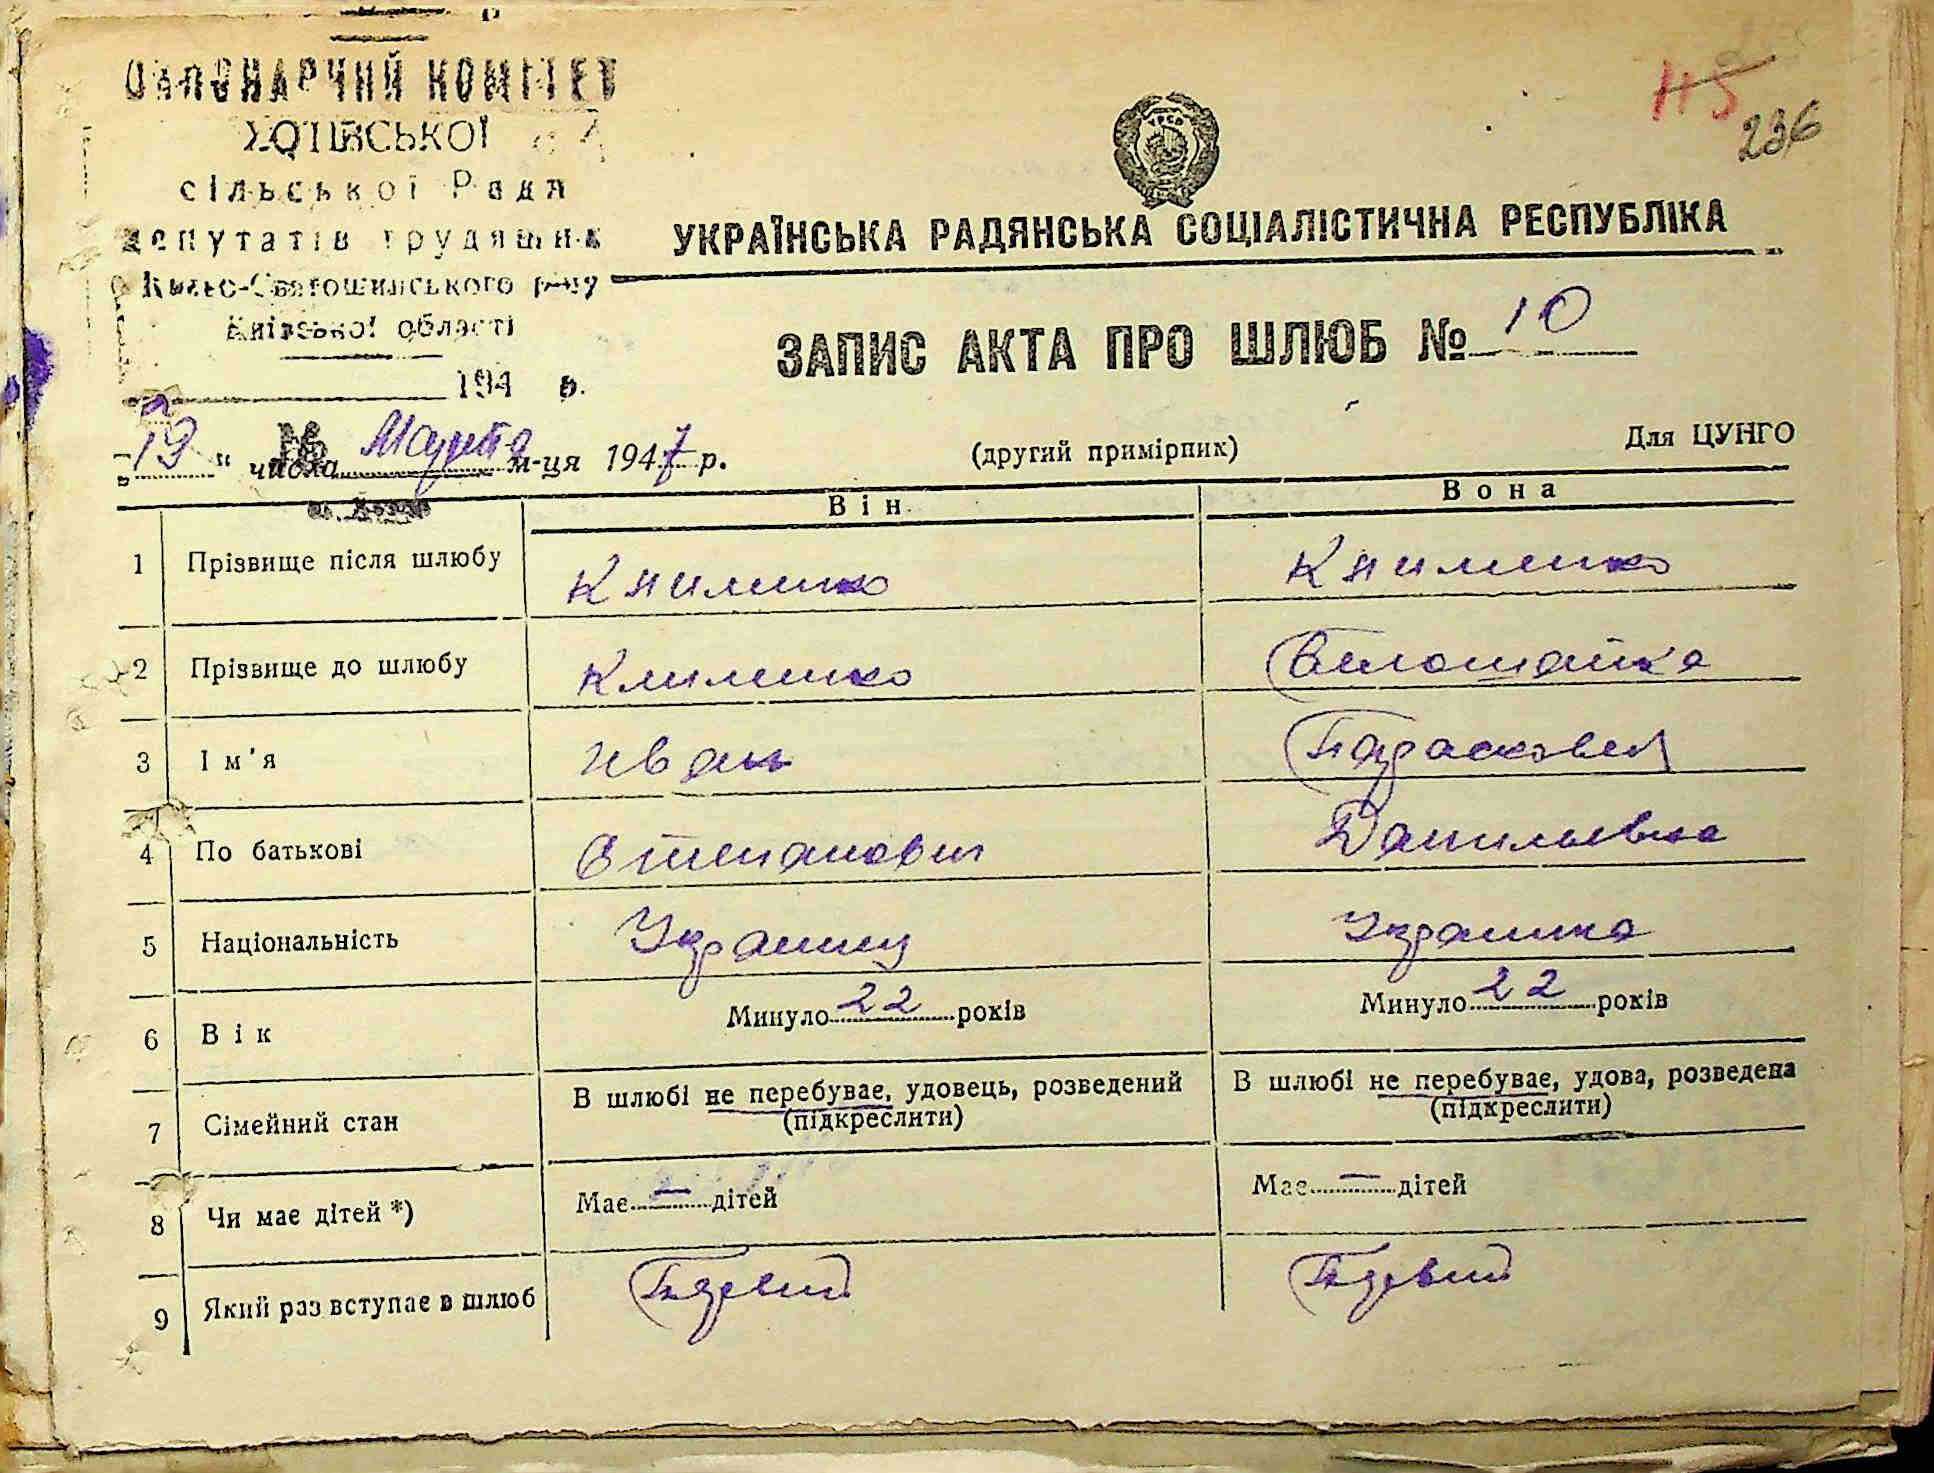 Виконавчий комітет
Хотівської
сільської Ради
депутатів трудящих
Києво-Святошинського р-ну
Київської області
194 р.
№
115
236
УРСР
УКРАЇНСЬКА РАДЯНСЬКА СОЦІАЛІСТИЧНА РЕСПУБЛІКА
ЗАПИС АКТА ПРО ШЛЮБ № 10
"19" числа Марта м-ця 1947 р.
(другий примірник)
Для ЦУНГО
Він
Вона
1 Прізвище після шлюбу Клименко Клименко
2 Прізвище до шлюбу Клименко Билошапка
3 Ім'я Иван Парасковея
4 По батькові Степанович Даниловна
5 Національність Украинец Украинка
6 Вік Минуло 22 років Минуло 22 років
7 Сімейний стан В шлюбі не перебуває, удовець, розведений (підкреслити) В шлюбі не перебуває, удова, розведена (підкреслити)
8 Чи має дітей *) Має — дітей Має — дітей
9 Який раз вступає в шлюб Первый Первый